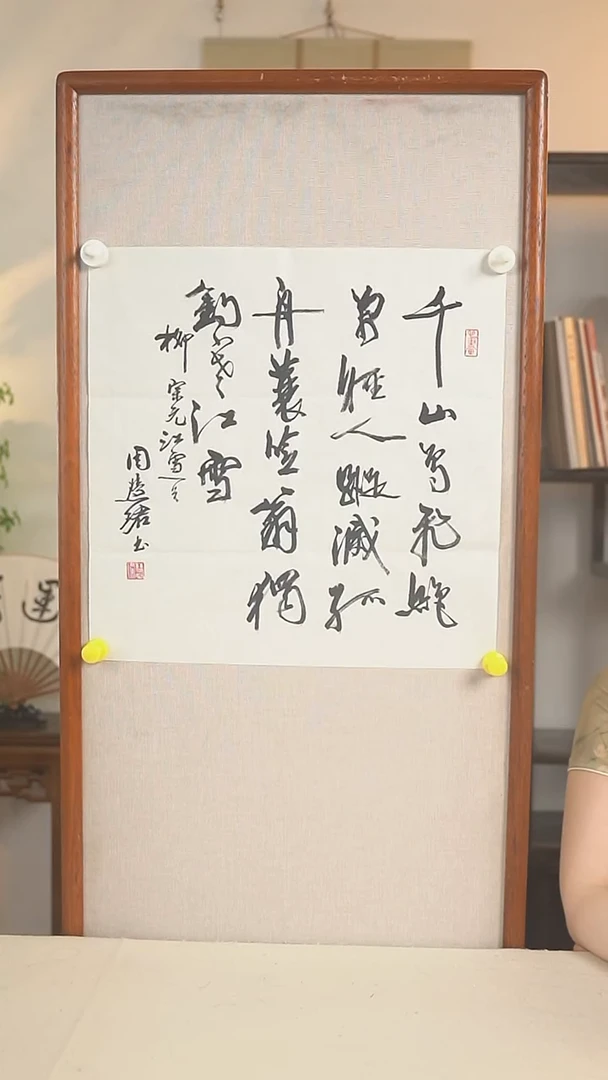 千山鳥飛絕
萬徑人蹤滅孤
舟蓑笠翁獨
釣寒江雪
柳宗元江雪一首
周
书